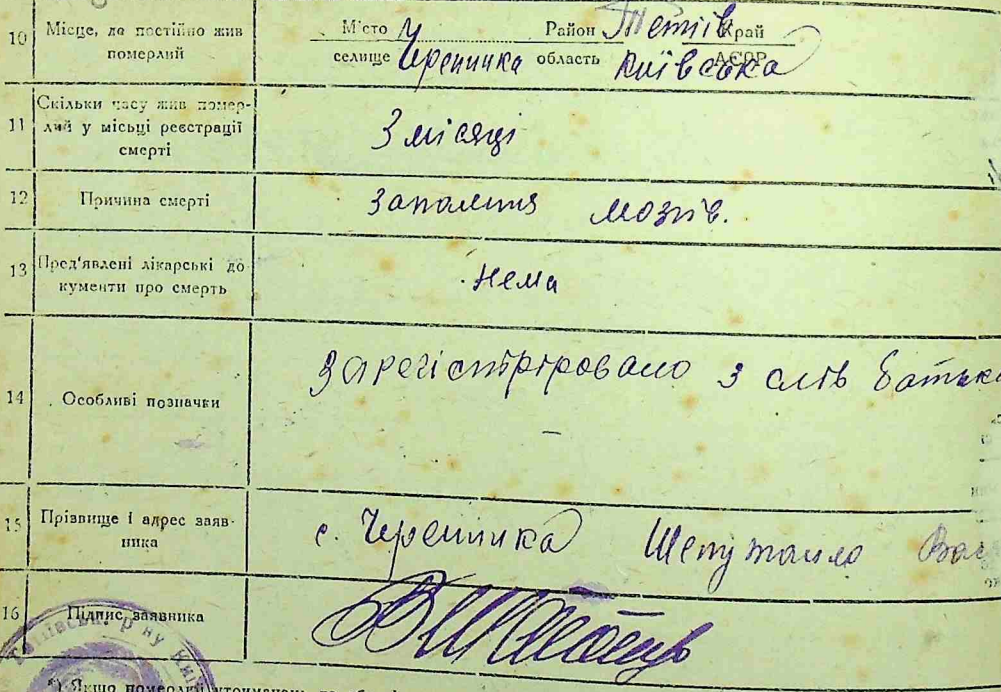 10 Місце, де постійно жив померлий
Місто Район Тетіїв Край
селище область Київська АССР
11 Скільки часу жив помер-
лий у місьці реєстрації
смерті
3 місяці
12 Причина смерті
Запалення мозків.
13 Пред'явлені лікарські до
кументи про смерть
Нема
14 Особливі позначки
Зарегістріровано з слів батька
15 Прізвище і адрес заяв-
ника
с.
16 Підпис заявника
*) Якщо померлий